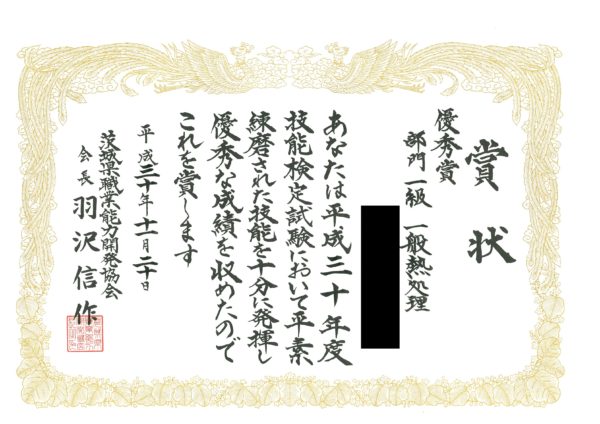 賞状
優秀賞
部門 一級 一般熱処理
あなたは平成三十年度
技能検定試験において平素
練磨された技能を十分に発揮し
優秀な成績を収めたので
これを賞します
平成三十年十一月二十日
茨城県職業能力開発協会
会長 羽沢信作